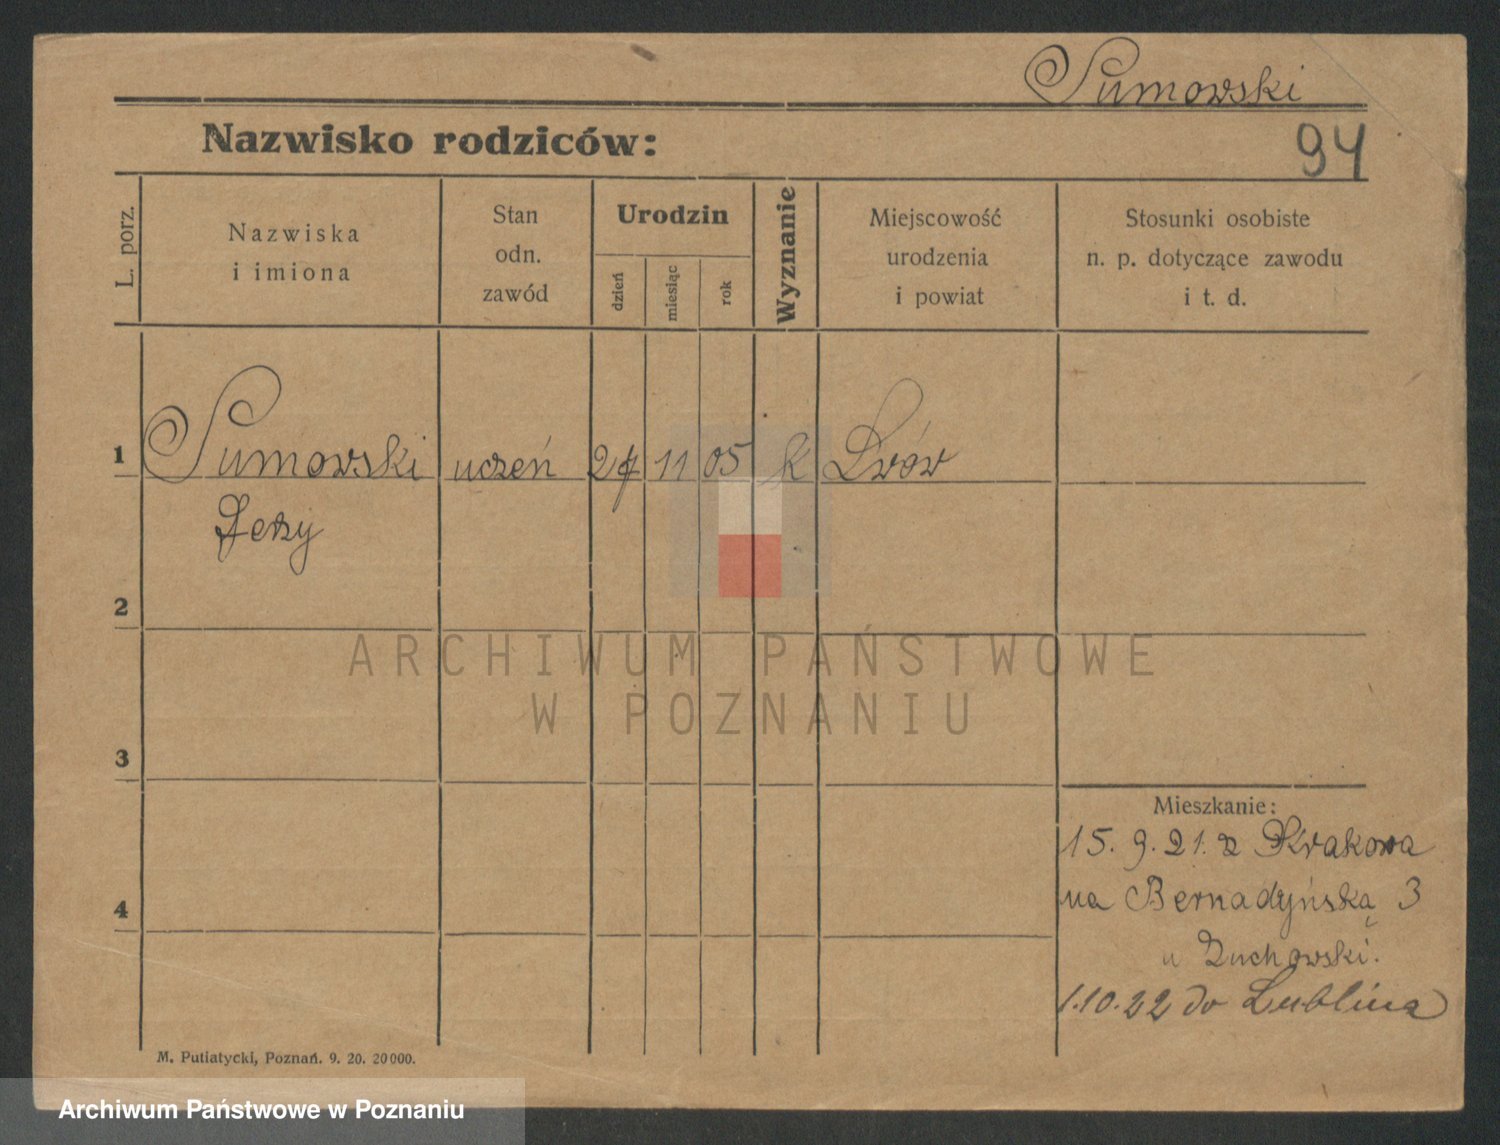 Sumowski
Nazwisko rodziców:
94
L. porz.
Nazwiska
i imiona
Stan
odn.
zawód
Urodzin
dzień
miesiąc
rok
Wyznanie
Miejscowość
urodzenia
i powiat
Stosunki osobiste
n. p. dotyczące zawodu
i t. d.
1 Sumowski uczeń 27 11 05 k Lwów
Jerzy
2
ARCHIWUM PAŃSTWOWE
W POZNANIU
3
Mieszkanie:
15. 9. 21. z Krakowa
na Bernadyńską 3
4
u Żuchowski.
1.10.22 do Lublina
M. Putiatycki, Poznań. 9. 20. 20000.
Archiwum Państwowe w Poznaniu